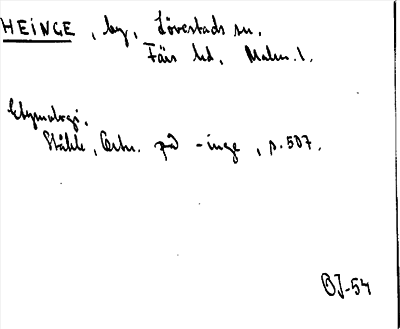 HEINGE, by, Lövestads sn.
Färs hd, Malm. l.
Etymologi.
Ståhle, Ortn. på -inge, p. 507.
OJ-54